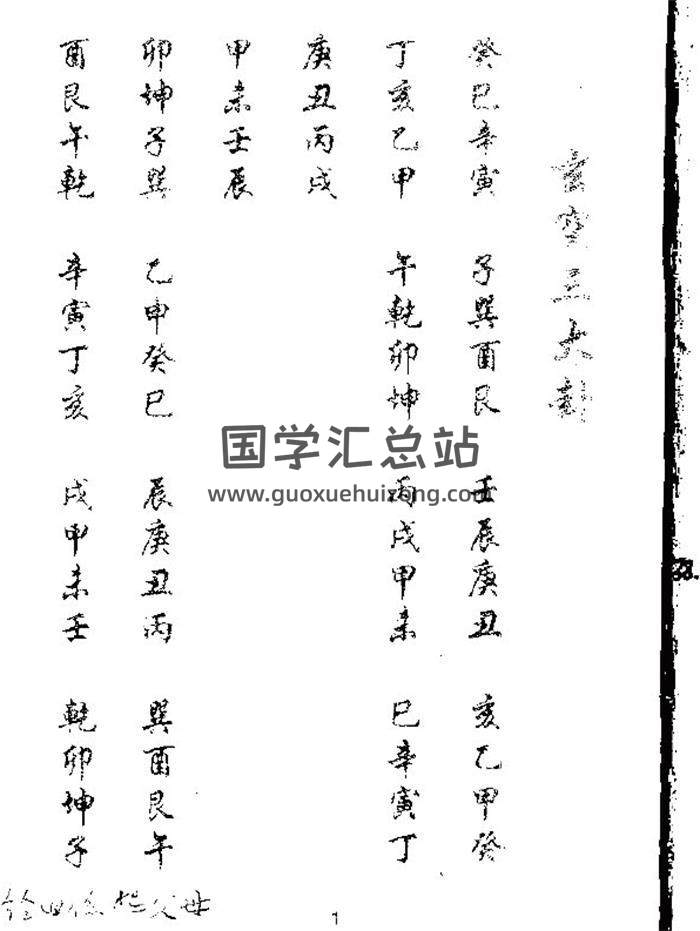 玄空三大卦
癸巳辛寅 子巽酉艮 壬辰庚丑 亥乙甲癸
丁亥乙甲 午乾卯坤 丙戌甲未 巳辛寅丁
庚丑丙戌
甲未壬辰
卯坤子巽 乙申癸巳 辰庚丑丙 巽酉艮午
酉艮午乾 辛寅丁亥 戌甲未壬 乾卯坤子
国学汇总站
www.guoxuehuizong.com
父母
1